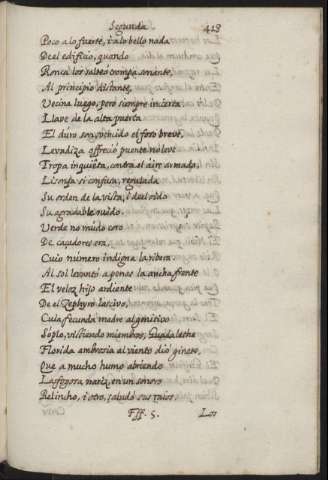 Segunda 413
Poco a lo fuerte, i a lo bello nada
De el edificio, quando
Ronca los salteò trompa sonante,
Al principio distante,
Vecina luego, pero siempre incierta
Llave de la alta puerta
El duro son, vencido el foso breve,
Levadiza offreciò puente no leve
Tropa inquieta, contra el aire armada,
Lisonja si confusa, regulada
Su orden de la vista, i de el oido
Su agradable ruido.
Verde no mudo coro
De caçadores era,
Cuio numero indigna la ribera
Al sol levantò apenas la ancha frente
El veloz hijo ardiente
De el Zephyro lascivo,
Cuia fecunda madre al genitivo
Soplo, vistiendo miembros, Guadalethe
Florida ambrosia al viento diò ginete,
Que a mucho humo abriendo
La fogosa nariz, en un sonoro
Relincho, i otro, saludò sus raios
Fff. 5. Los